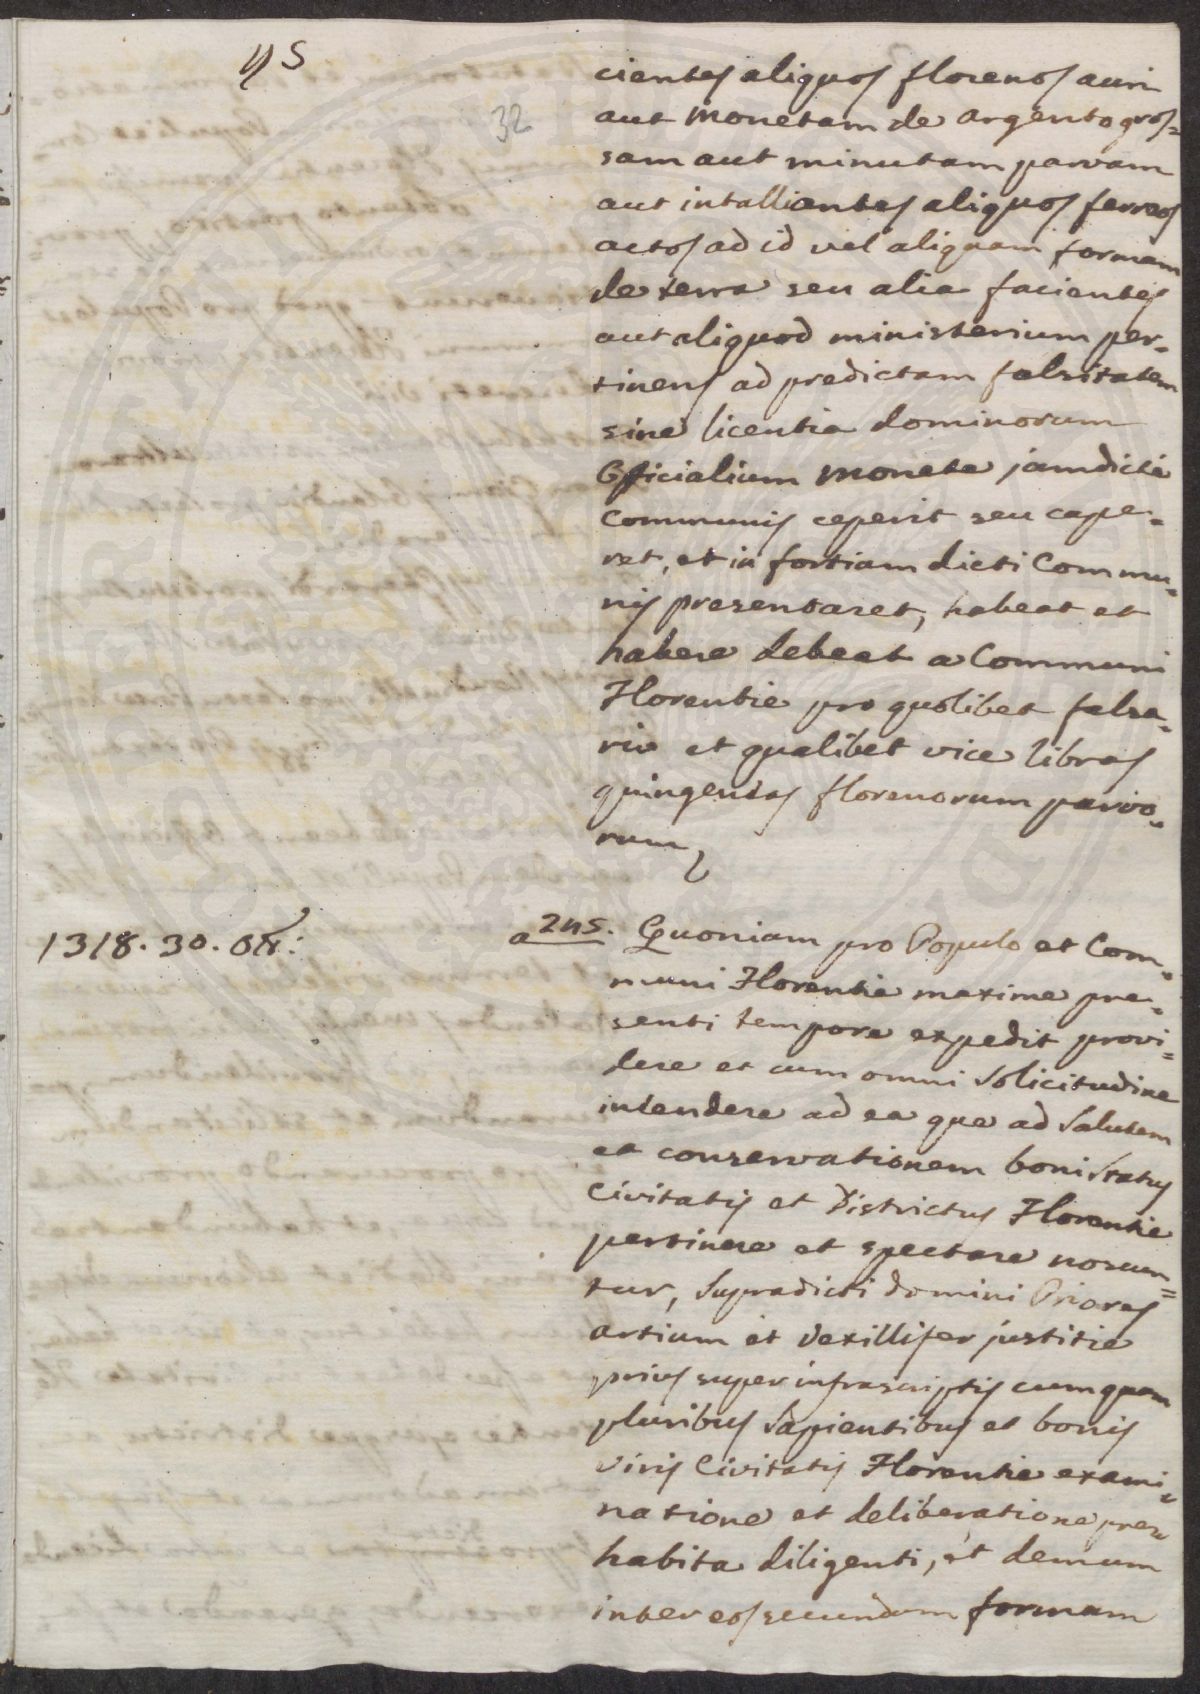 45
32
cientes aliquos florenos auri
aut monetam de argento gros=
sam aut minutam parvam
aut intalliantes aliquos ferros
actos ad id vel aliquam formam
de terra seu alia facientes
aut aliquod ministerium per=
tinens ad predictam falsitatem
sine licentia dominorum
Officialium monete jamdicti
Communis ceperit seu cape=
ret, et in fortiam dicti Commu=
nis presentaret, habeat et
habere debeat a Communi
Florentie pro quolibet falsa=
rio et qualibet vice libras
quingentas florenorum parvo=
rum
1318. 30. Ott:
a 245. Quoniam pro Populo et Com=
muni Florentie maxime pre=
senti tempore expedit provi=
dere et cum omni solicitudine
intendere ad ea que ad salutem
et conservationem boni status
Civitatis et Districtus Florentie
pertinere et spectare noscun=
tur, supradicti domini Priores
artium et Vexillifer justitie
prius super infrascriptis cum quam
pluribus sapientibus et bonis
viris Civitatis Florentie exami=
natione et deliberatione pre=
habita diligenti, et demum
inter eos secundum formam